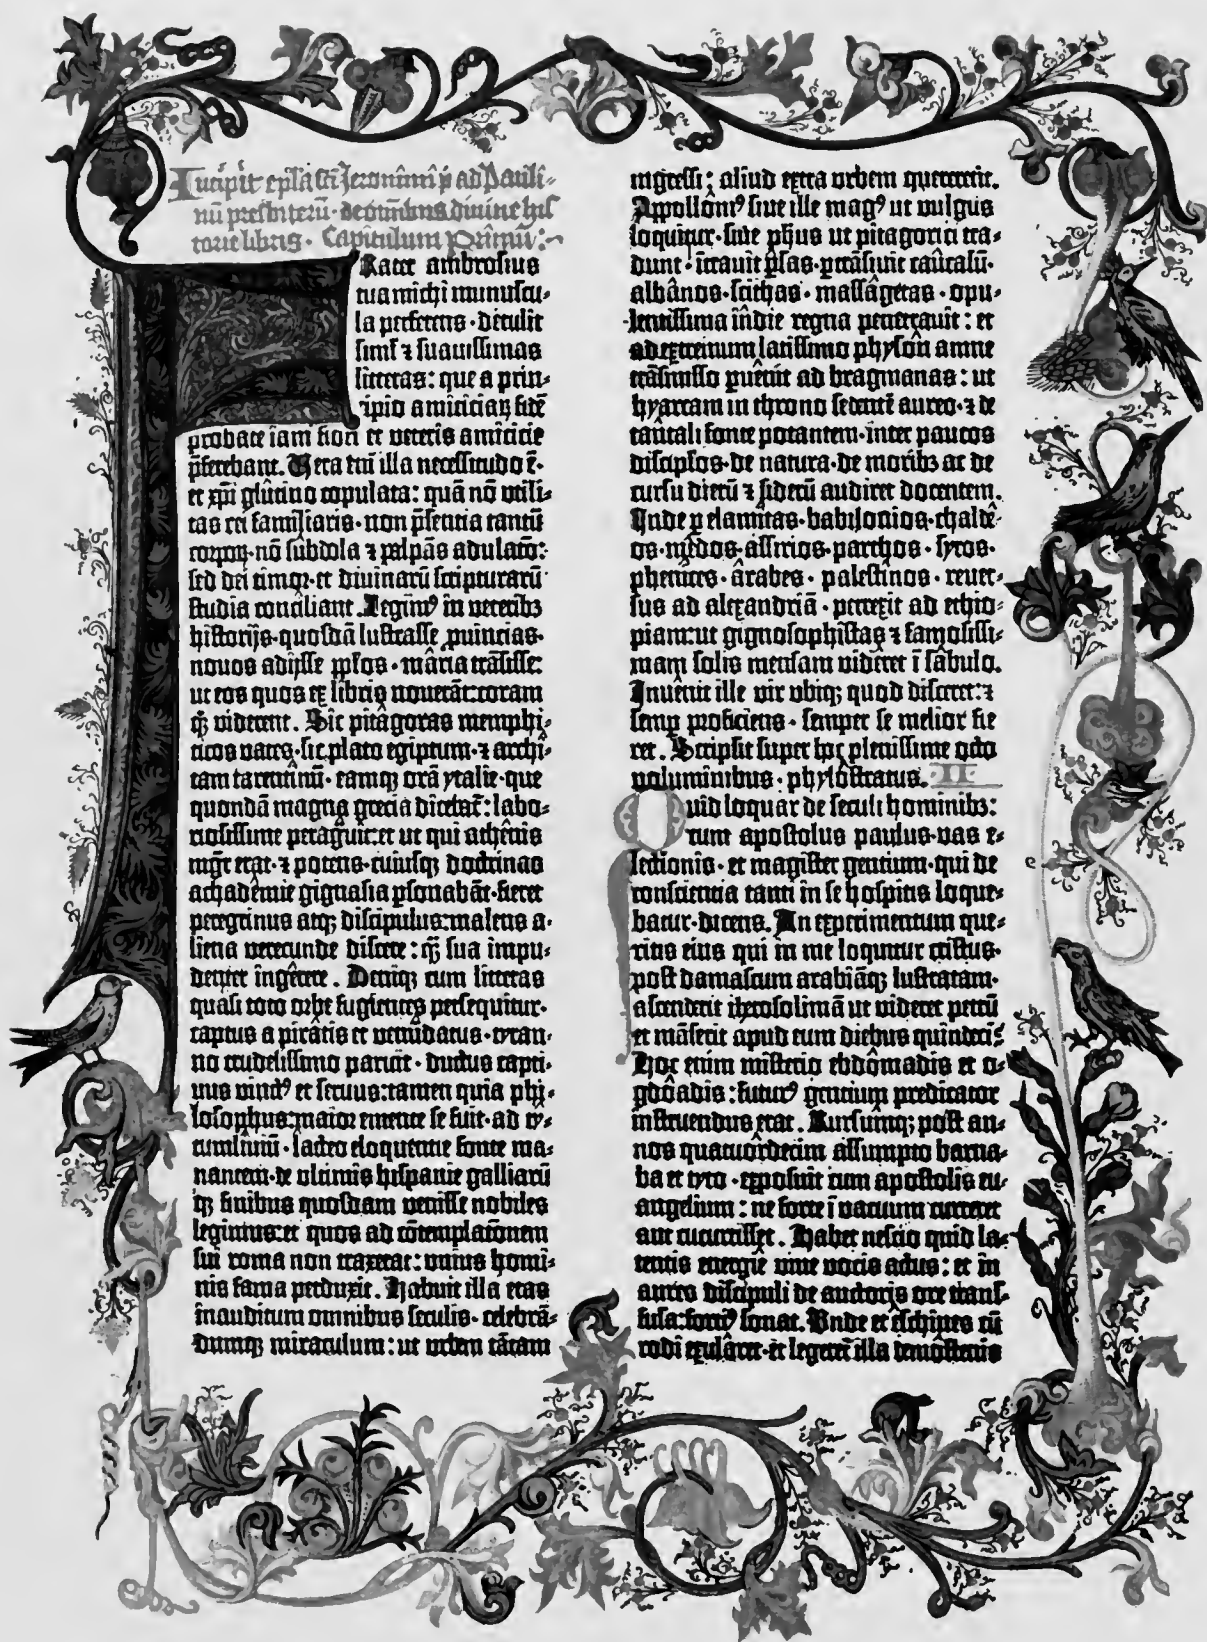 Incipit epl̄a sc̄i Jeronimi p̄ ad Pauli-
nū presbiterū· de omnibus divine his
torie libris· Capitulum Primū:
FRater ambrosius
tua michi munuscu-
la perferens· detulit
siml̄ ⁊ suauissimas
litteras: que a prin-
cipio amiciciaꝝ fidē
probate iam fidei et veteris amicicie
p̄ferebant. Vera em̄ illa necessitudo ē·
et xp̄i glutino copulata: quā nō vtili-
tas rei familiaris· non p̄sentia tantū
corpoꝝ· nō subdola ⁊ palpās adulatō:
sed dei timor· et diuinarū scripturarū
studia conciliant. Legimꝰ in veteribꝫ
historijs· quosdā lustrasse ꝓuincias·
novos adijsse pp̄los· maria trāsisse:
ut eos quos ex libris nouerāt: coram
qꝫ viderent. Sic pitagoras memphi-
ticos vates· sic plato egiptum· ⁊ archi-
tam tarentinū· eamqꝫ orā ytalie· que
quondā magna grecia dicebat̄: labo-
riosissime peragrauit: et ut qui athenis
mgr̄ erat· ⁊ potens· cuiusqꝫ doctrinas
achademie gignasia ꝑsonabāt· fieret
peregrinus atqꝫ discipulus: malens a-
liena verecunde discere: qꝫ̄ sua impu-
denter ingerere. Deniqꝫ cum litteras
quasi toto orbe fugientes persequitur·
captus a piratis et venūdatus· tyran-
no crudelissimo paruit· ductus capti-
uus vinctꝰ et seruus: tamen quia phi-
losophus: maior emente se fuit· ad ty-
tumliuiū· lacteo eloquentie fonte ma-
nantem· de vltimis hispanie galliarū
qꝫ finibus quosdam venisse nobiles
legimus: et quos ad cōtemplatōnem
sui roma non traxerat: vnius homi-
nis fama perduxit. Habuit illa etas
inauditum omnibus seculis· celebrā-
dumqꝫ miraculum: ut vrbem tātam
ingressi: aliud extra vrbem quererent.
Appolloniꝰ siue ille magꝰ ut vulgus
loquitur· siue ph̄us ut pitagorici tra-
dunt· ītrauit ꝑsas· ꝑtrāsiuit caucasū·
albanos· scithas· massagetas· opu-
lentissima indie regna penetrauit: et
ad extremum latissimo physon amne
trāsmisso ꝑuenit ad bragmanas: ut
hyarcam in throno sedentē aureo· ⁊ de
tantali fonte potantem· inter paucos
discipl̄os· de natura· de moribꝫ ac de
cursu dierū ⁊ siderū audiret docentem.
Inde ꝑ elamitas· babilonios· chalde-
os· medos· assirios· parthos· syros·
phenices· arabes· palestinos· reuer-
sus ad alexandriā· perrexit ad ethio-
piam: ut gignosophistas ⁊ famosissi-
mam solis mensam videret ī sabulo.
Inuenit ille vir vbiqꝫ quod disceret: ⁊
semꝑ proficiens· semper se melior fie
ret. Scripsit super hoc plenissime octo
voluminibus· phylostratus. II
Quid loquar de seculi hominibꝫ:
cum apostolus paulus· vas e-
lectionis· et magister gentium· qui de
consciencia tanti in se hospitis loque-
batur· dicens. An experimentum que-
ritis eius qui in me loquitur cristus·
post damascum arabiāqꝫ lustratam·
ascenderit iherosolimā ut videret petrū
et māserit apud eum diebus quindecī.
Hoc enim misterio ebdomadis et o-
gdoadis: futurꝰ gentium predicator
instruendus erat. Rursūmqꝫ post an-
nos quatuordecim assumpto barna-
ba et tyto· exposuit cum apostolis eu-
angelium: ne forte ī vacuum curreret
aut cucurrisset. Habet nescio quid la-
tentis energie viue vocis actus: et in
aures discipuli de auctoris ore trans-
fusa: fortiꝰ sonat. Vnde et eschines cū
rodi exularet· et legeret̄ illa demostenis